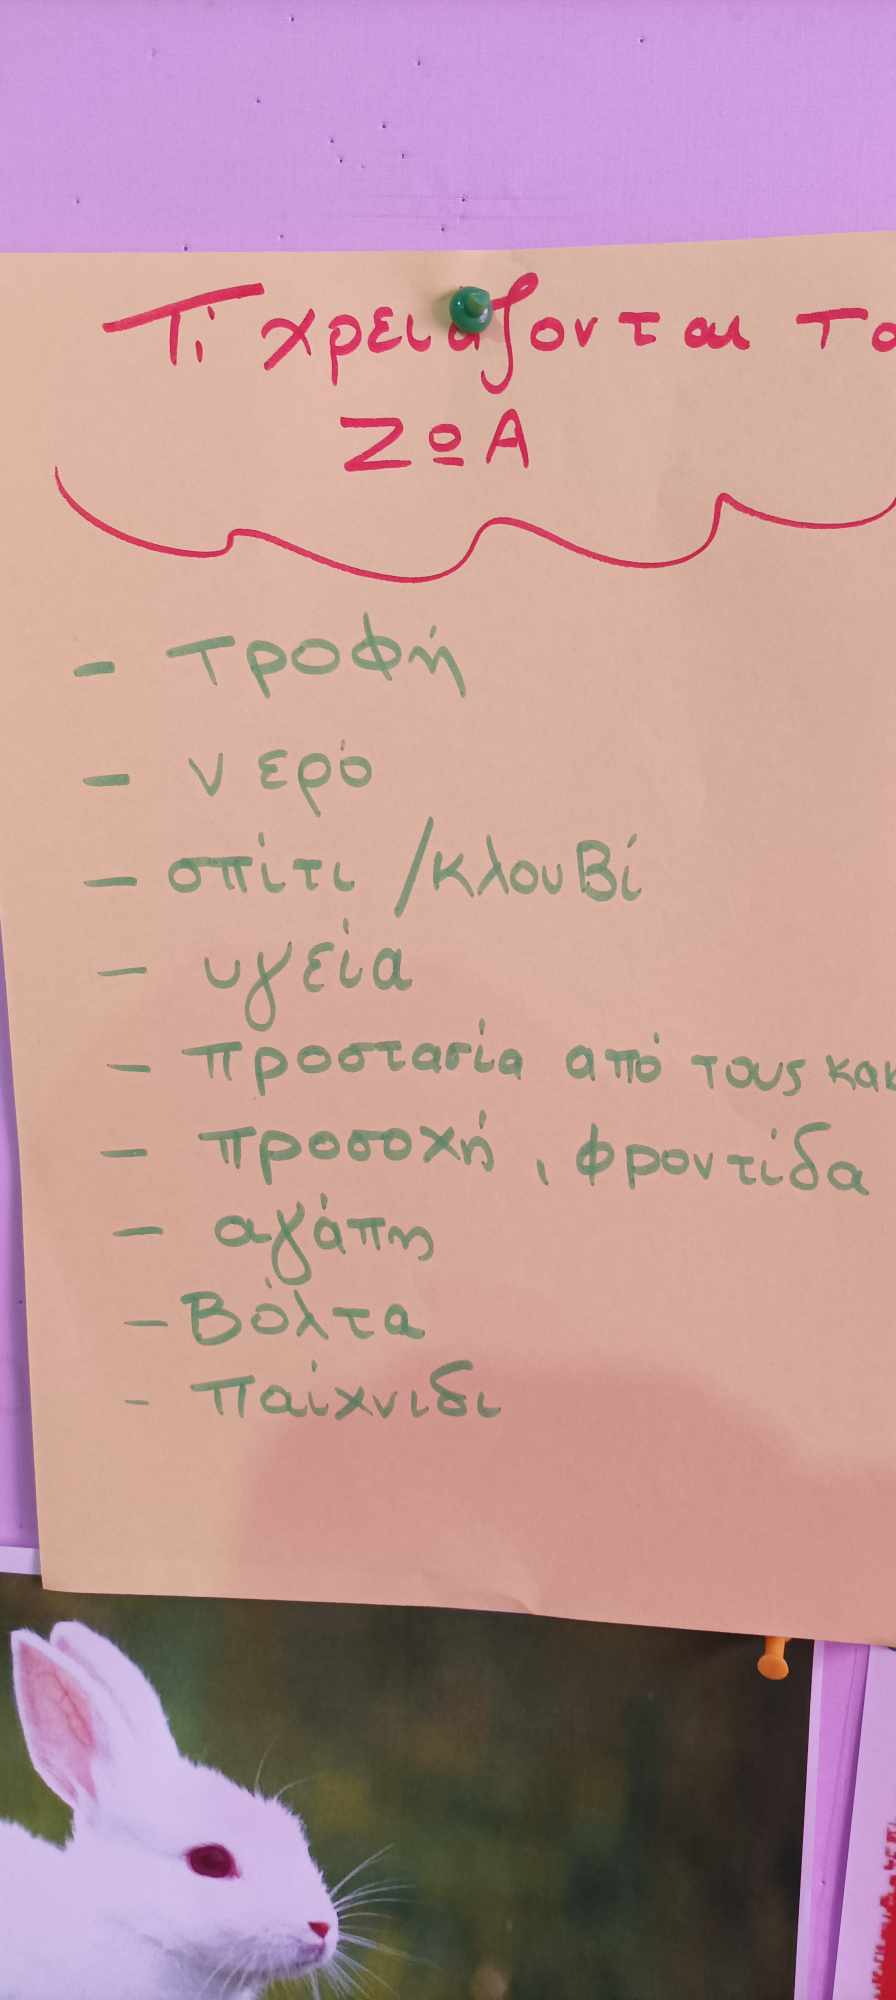 Τι χρειάζονται τα
ΖΩΑ
- τροφή
- νερό
- σπίτι /κλουβί
- υγεία
- προστασία από τους
- προσοχή, φροντίδα
- αγάπη
- Βόλτα
- παίχνιδι